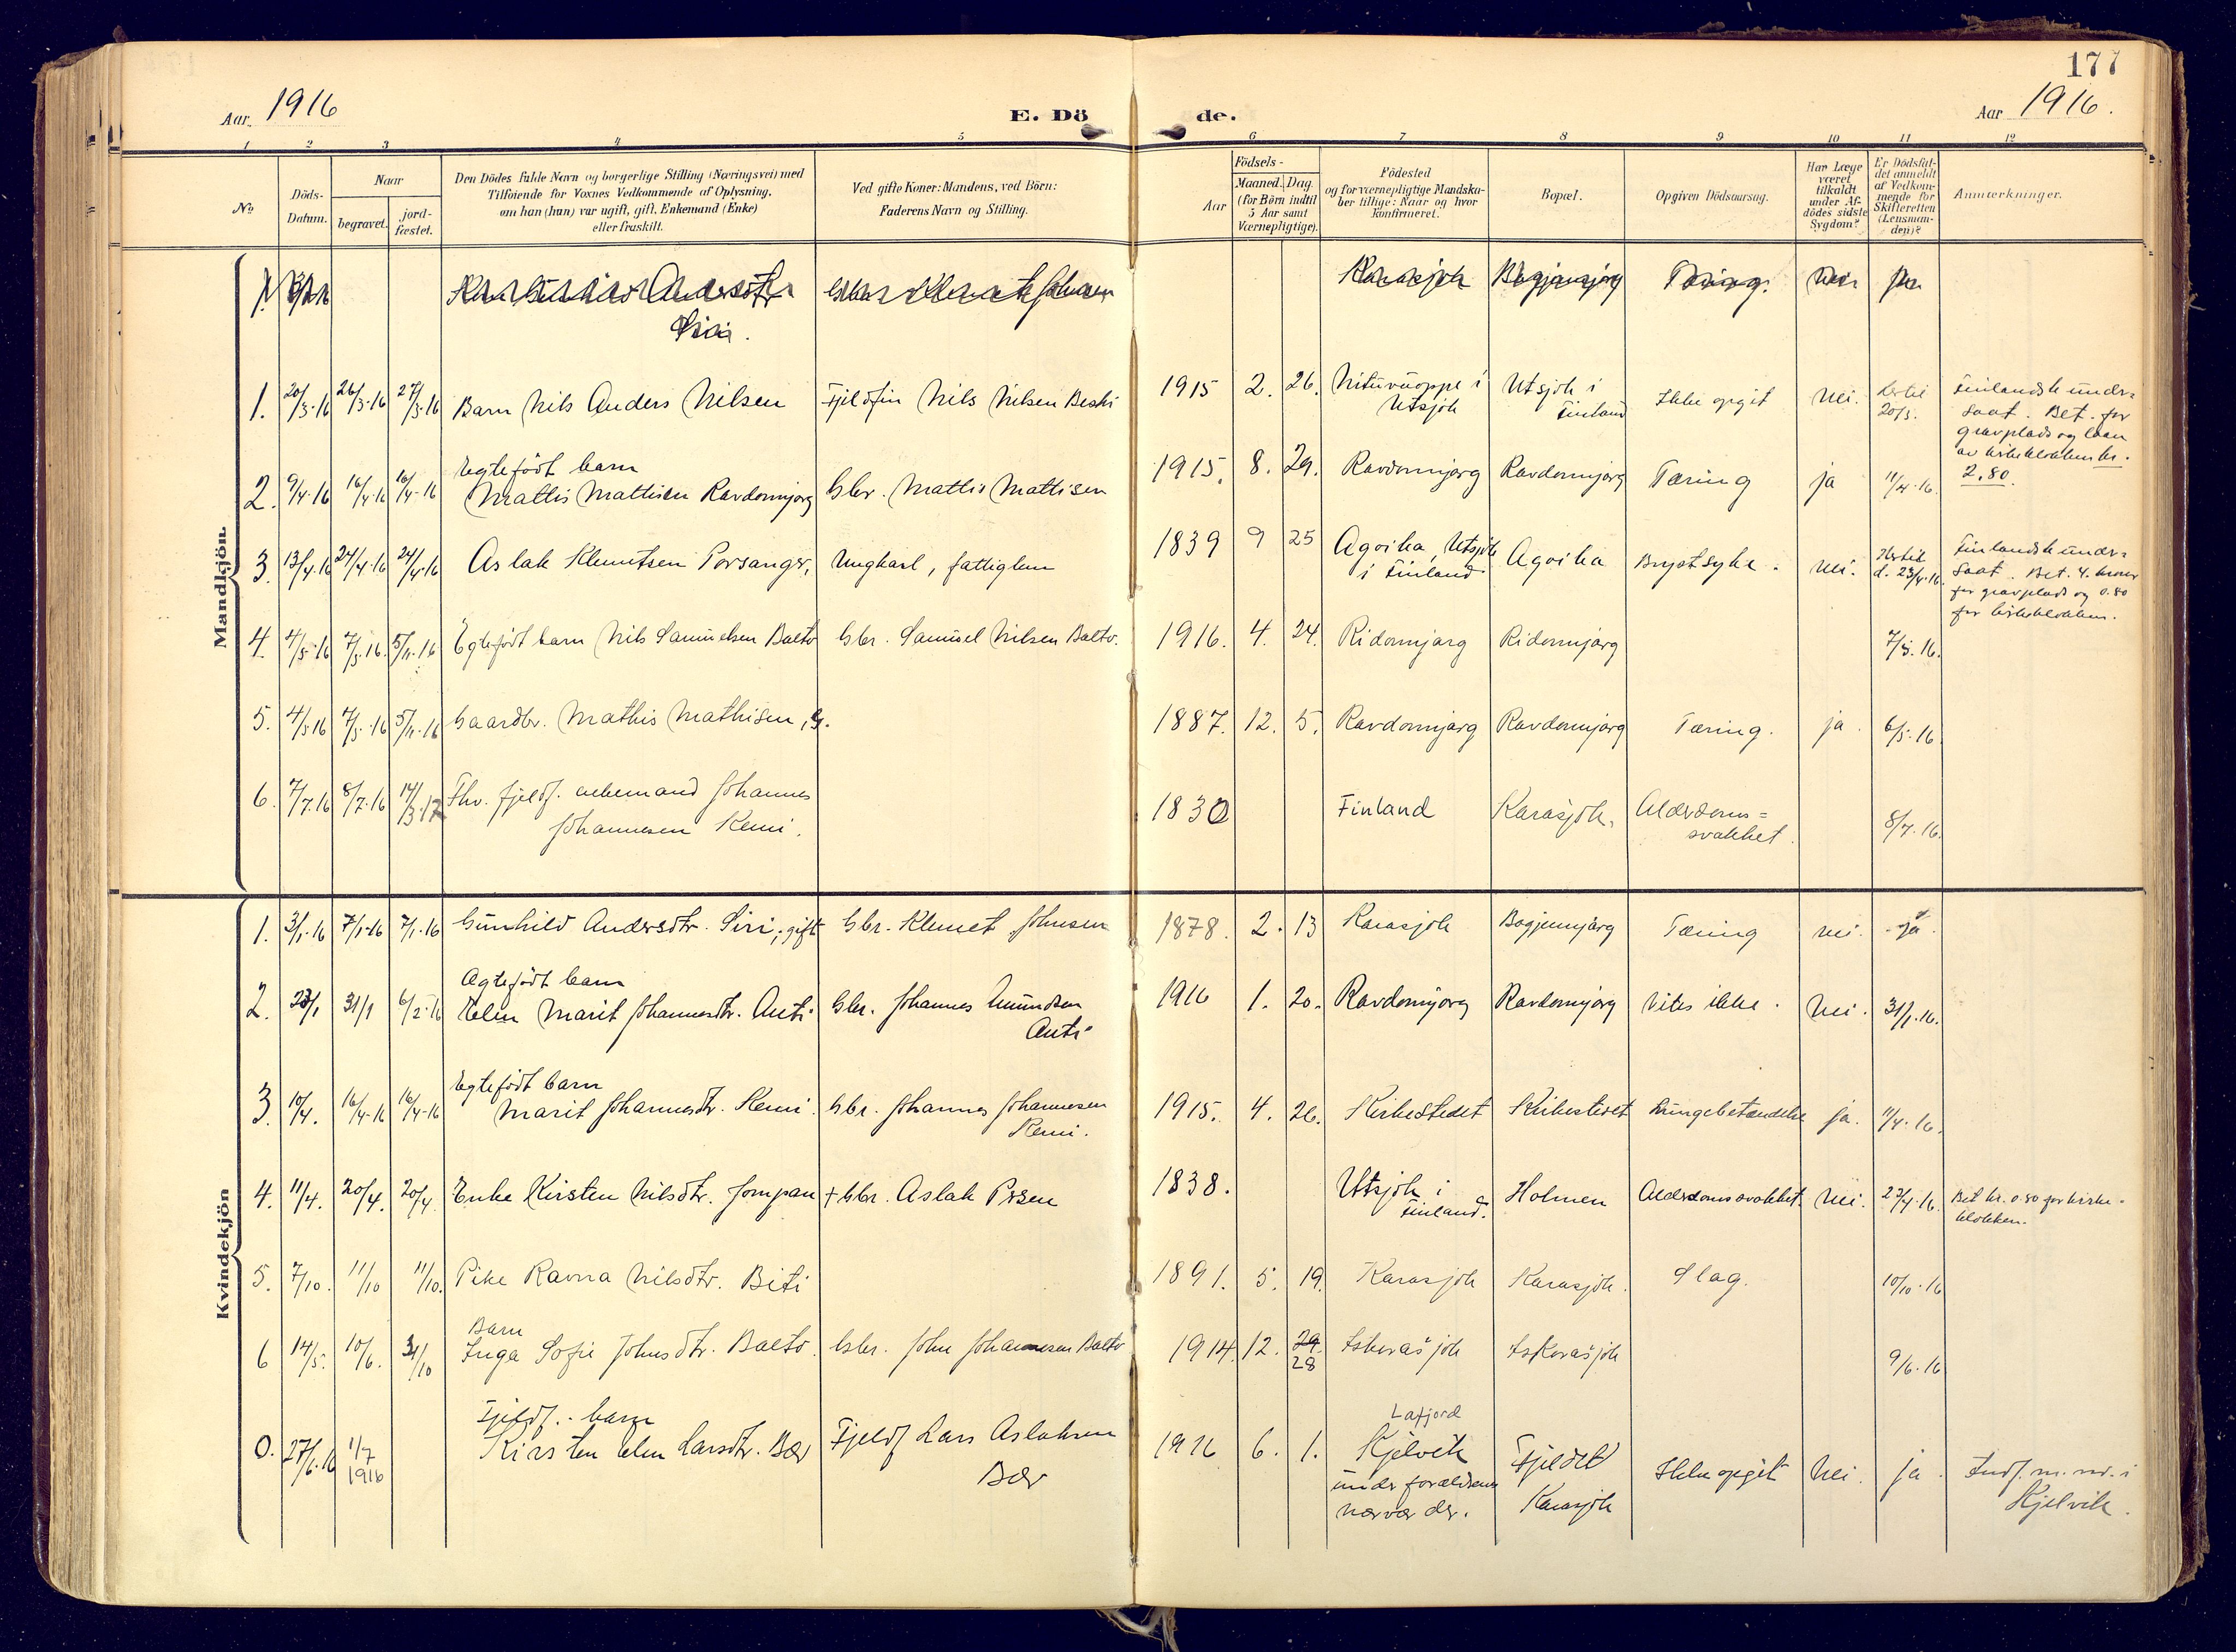 177
Aar 1916
E. Dö de.
Aar 1916.
1 2 3 4 5 6 7 8 9 10 11 12
No
Döds-
Datum.
Naar
begravet.
jord-
fæstet.
Den Dödes fulde Navn og borgerlige Stilling (Næringsvei) med
Tilföiende for Voxnes Vedkommende af Oplysning,
om han (hun) var ugift, gift, Enkemand (Enke)
eller fraskilt.
Ved gifte Koner: Mandens, ved Börn:
Faderens Navn og Stilling.
Födsels-
Aar
Maaned. Dag.
(for Börn indtil
5 Aar samt
Værnepligtige).
Födested
og for værnepligtige Mandska-
ber tillige: Naar og hvor
konfirmeret.
Bopæl.
Opgiven Dödsaarsag.
Har Læge
været
tilkaldt
under Af-
dödes sidste
Sygdom?
Er Dödsfal-
det anmeldt
af Vedkom-
mende for
Skifteretten
(Lensman-
den)?
Anmærkninger.
Mandkjön.
1. Andersdtr. Johnsen Karasjok Bogjennjarg Tæring. Nei Ja
Siri.
1. 20/3-16 26/3-16 27/3-16 Barn Nils Anders Nilsen Fjeldfin Nils Nilsen Beski 1915 2. 26. Nituvuoppe i Utsjok i Ikke opgit Nei. 20/3. Finlandsk under=
Utsjok Finland saat. Bet. for
gravplads og laan
av kirkeklokken kr.
2.80.
Egtefödt barn
2. 9/4-16 16/4-16 16/4-16 Mattis Mattisen Ravdomnjarg Gbr. Mattis Mattisen 1915. 8. 29. Ravdomnjarg Ravdomnjarg Tæring ja 11/4-16.
3. 13/4-16 24/4-16 24/4-16 Aslak Klemetsen Porsanger, Ungkarl, fattiglem 1839 9 25 Agvika, Utsjok Agvika Brystsyke. nei. d. 23/4-16. Finlandsk under=
i Finland saat. Bet. 4. kroner
for gravplads og 0.80
for kirkeklokken.
4. 4/5-16 7/5-16. 5/11-16 Egtefödt barn Nils Samuelsen Balto Gbr. Samuel Nilsen Balto. 1916. 4. 24. Ridomnjarg Ridomnjarg 7/5. 16.
5. 4/5 16 7/5-16 5/11-16 Gaardbr. Mathis Mathisen, 1887. 12. 5. Ravdomnjarg Ravdomnjarg Tæring. ja. 6/5-16.
6. 7/7.16 8/7-16 14/3.17 Fhv. fjeldf. enkemand Johannes 1830 Finland Karasjok. Alderdoms= 8/7.16.
Johannesen Kemi. svakhet.
Kvindekjön
1. 3/1-16 7/1-16 7/1-16 Gunhild Andersdtr. Siri, gift Gbr. Klemet Johnsen 1878. 2. 13 Karasjok Bogjennjarg Tæring nei. ja.
Ægtefödt barn
2. 23/1 31/1 6/2-16 Elen Marit Johannesdtr. Anti Gbr. Johannes Amundsen 1916 1. 20. Ravdomnjarg Ravdomnjarg Vites ikke. Nei. 31/1.16.
Anti
Egtefödt barn
3. 10/4. 16/4-16 16/4-16 Marit Johannesdtr. Kemi. Gbr. Johannes Johannesen 1915. 4. 26. Kirkestedet Kirkestedet Lungebetændelse ja. 11/4-16.
Kemi.
4. 11/4. 20/4. 20/4. Enke Kirsten Nilsdtr. Jompan + Gbr. Aslak Persen 1838. Utsjok i Holmen Alderdomssvakhet. Nei. 23/4-16. Bet kr. 0.80 for kirke-
Finland. klokken.
5. 7/10. 11/10 11/10. Pike Ravna Nilsdtr. Biti 1891. 5. 19. Karasjok Karasjok. Slag. 10/10-16
Barn
6 14/5. 10/6. 31/10 Inga Sofie Johnsdtr. Balto. Gbr. John Johannesen Balto 1914. 12. 29. Iskorasjok Iskorasjok 9/6-16
28
Fjeldf.- barn Lafjord
0. 27/6.16 1/7 Kirsten Elen Larsdtr. Bær Fjeldf Lars Aslaksen 1916 6. 1. Kjelvik Fjeldet Ikke opgit Nei. ja. Indf. m. nr. i
1916 Bær under forældrenes Karasjok Kjelvik.
nærvær der.